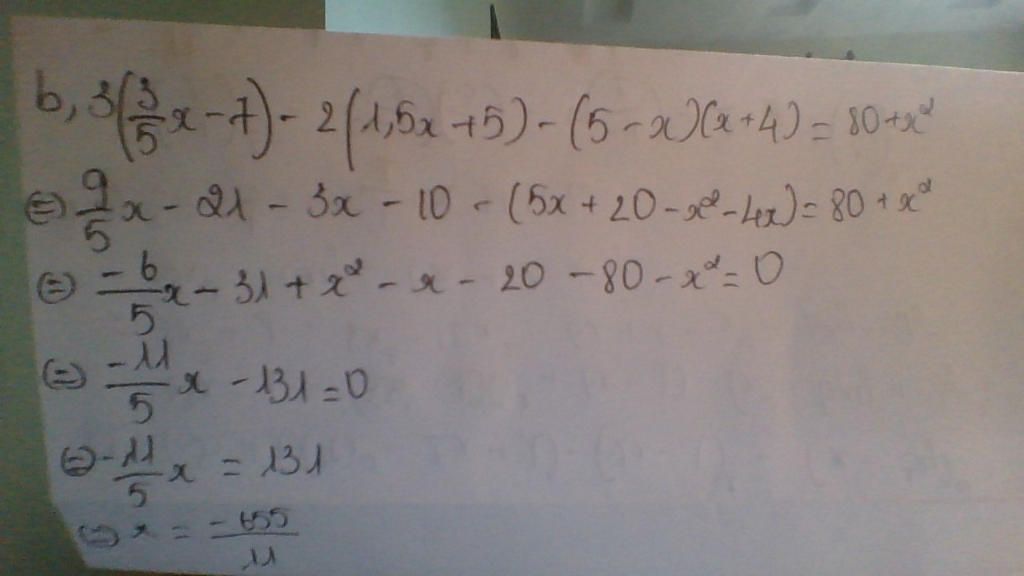 b, 3(3/5x - 7) - 2(1,5x + 5) - (5 - x)(x + 4) = 80 + x²
⇔ 9/5x - 21 - 3x - 10 - (5x + 20 - x² - 4x) = 80 + x²
⇔ -6/5x - 31 + x² - x - 20 - 80 - x² = 0
⇔ -11/5x - 131 = 0
⇔ -11/5x = 131
⇔ x = -655/11